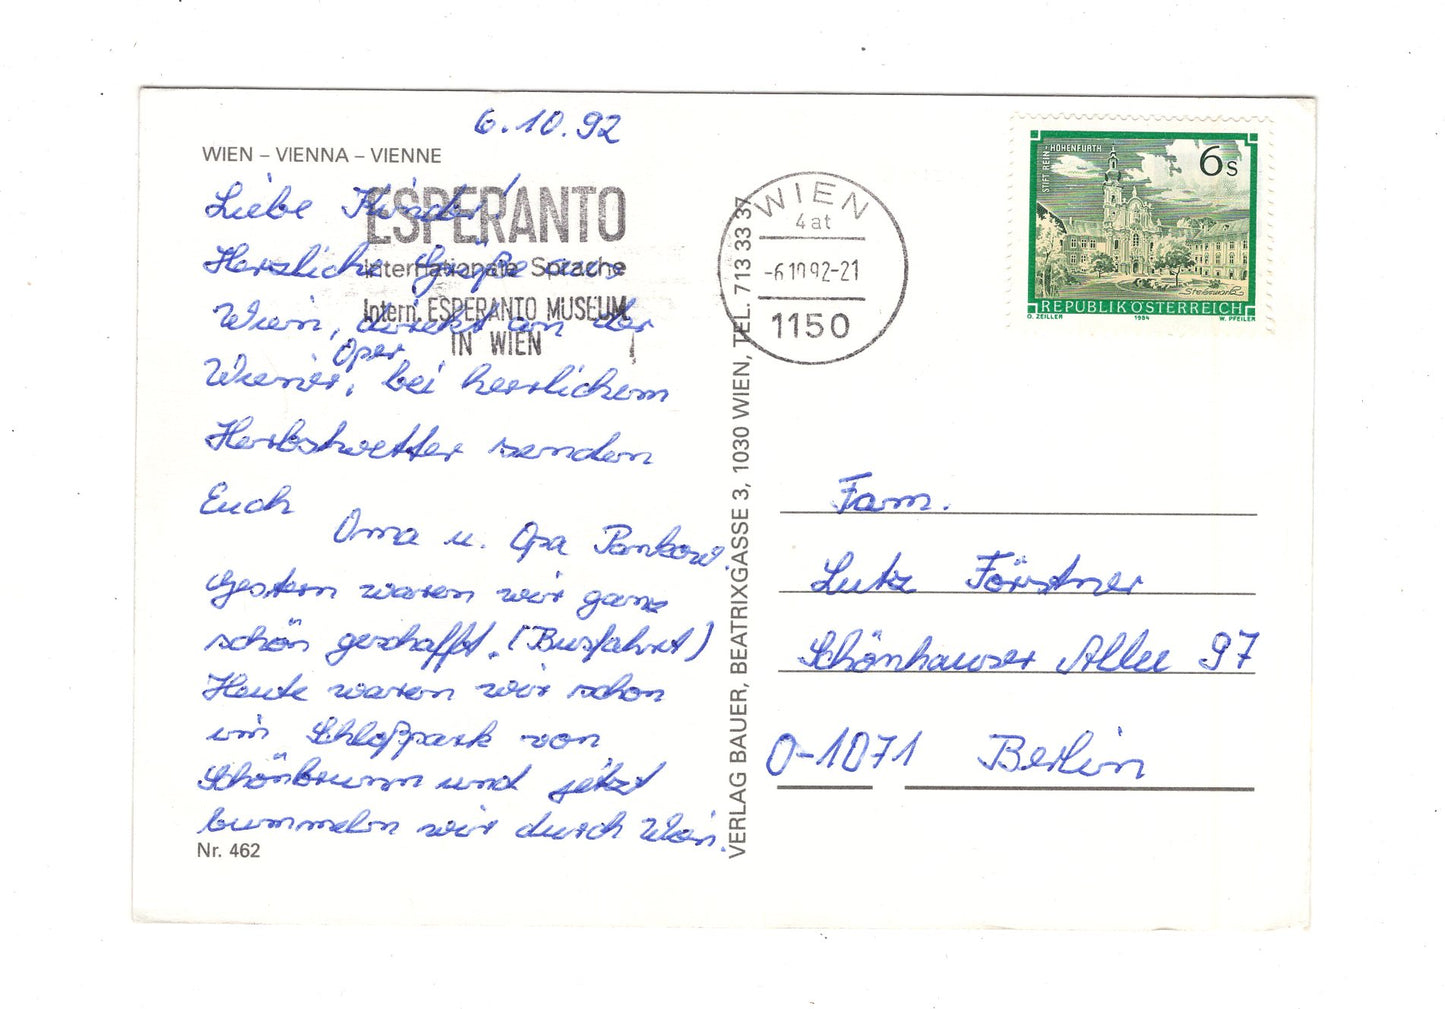 6.10.92
WIEN – VIENNA – VIENNE
Liebe Kinder!
Herzliche Grüße aus
Wien, direkt an der
Oper
Wiener, bei herrlichem
Herbstwetter senden
Euch
Oma u. Opa Pankow.
Gestern waren wir ganz
schön geschafft. (Busfahrt)
Heute waren wir schon
im Schloßpark von
Schönbrunn und jetzt
bummeln wir durch Wien.
Nr. 462
ESPERANTO
Internationale Sprache
Intern. ESPERANTO MUSEUM
IN WIEN
VERLAG BAUER, BEATRIXGASSE 3, 1030 WIEN, TEL. 713 33 37
WIEN
4at
-6.10.92-21
1150
STIFT REIN-HOHENFURTH
6s
Steiermark
REPUBLIK ÖSTERREICH
O. ZEILLER 1984 W. PFEILER
Fam.
Lutz Förstner
Schönhauser Allee 97
O-1071 Berlin